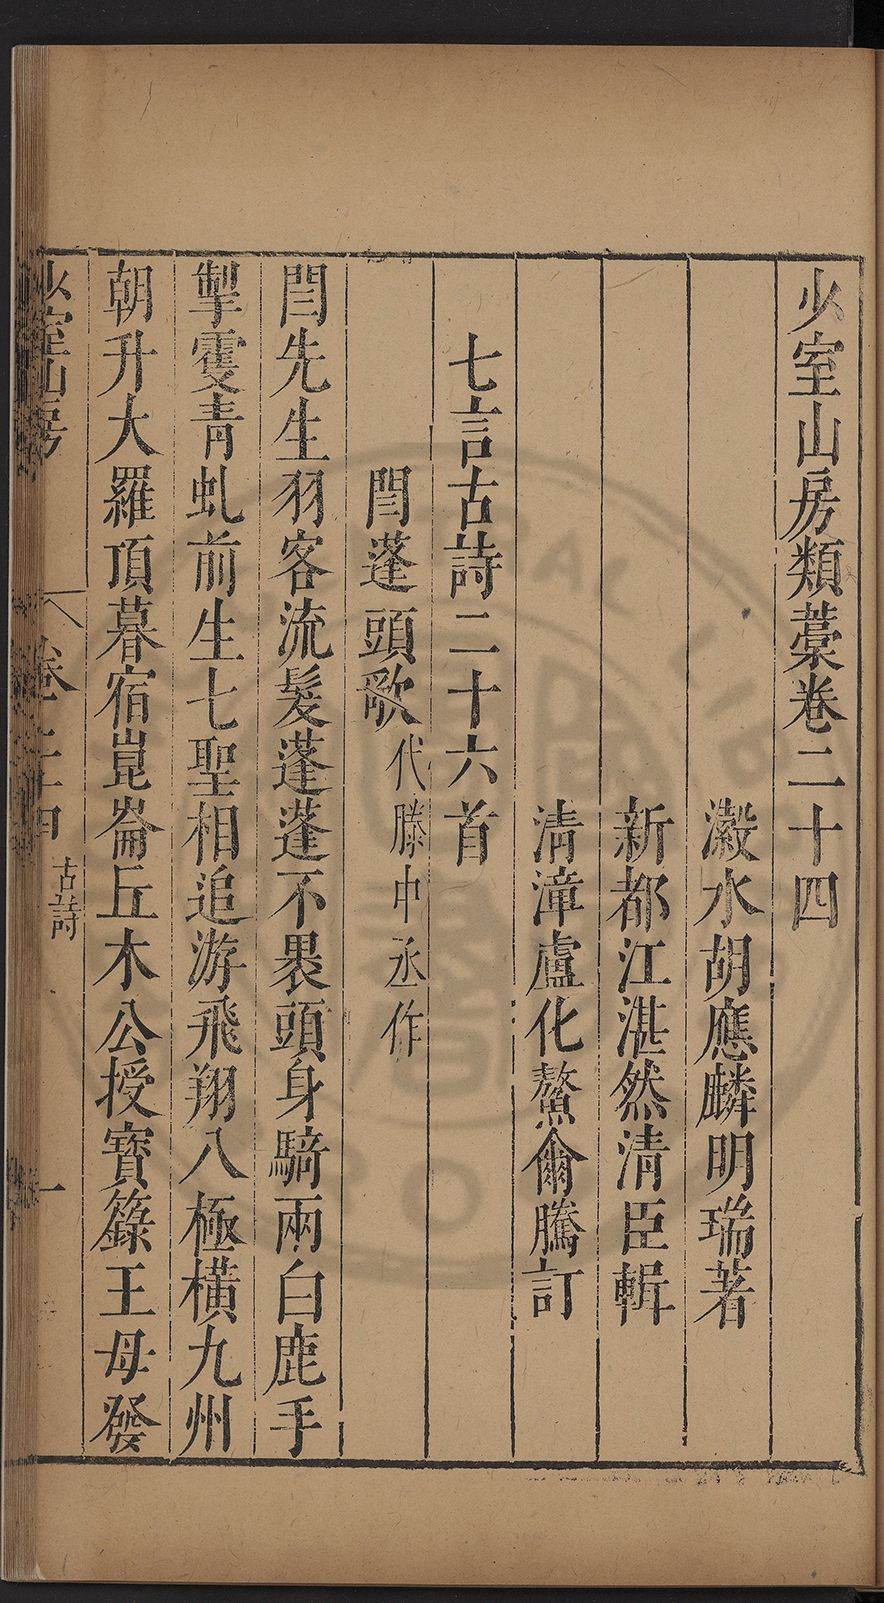 少室山房類藁卷二十四
瀫水胡應麟明瑞著
新都江湛然清臣輯
清漳盧化鰲爾騰訂
七言古詩二十六首
閆蓬頭歌代滕中丞作
閆先生羽客流髮蓬蓬不褁頭身騎兩白鹿手
掣雙青虬前生七聖相追游飛翔八極橫九州
朝升大羅頂暮宿崑崙丘木公授寶籙王母發
少室山房 卷二十四 古詩 一